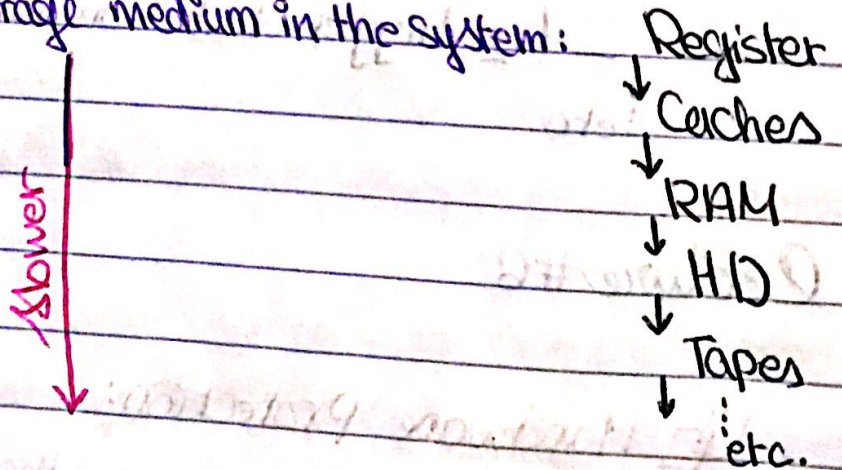 rage medium in the system: Register
Caches
RAM
HD
Tapes
etc.
slower